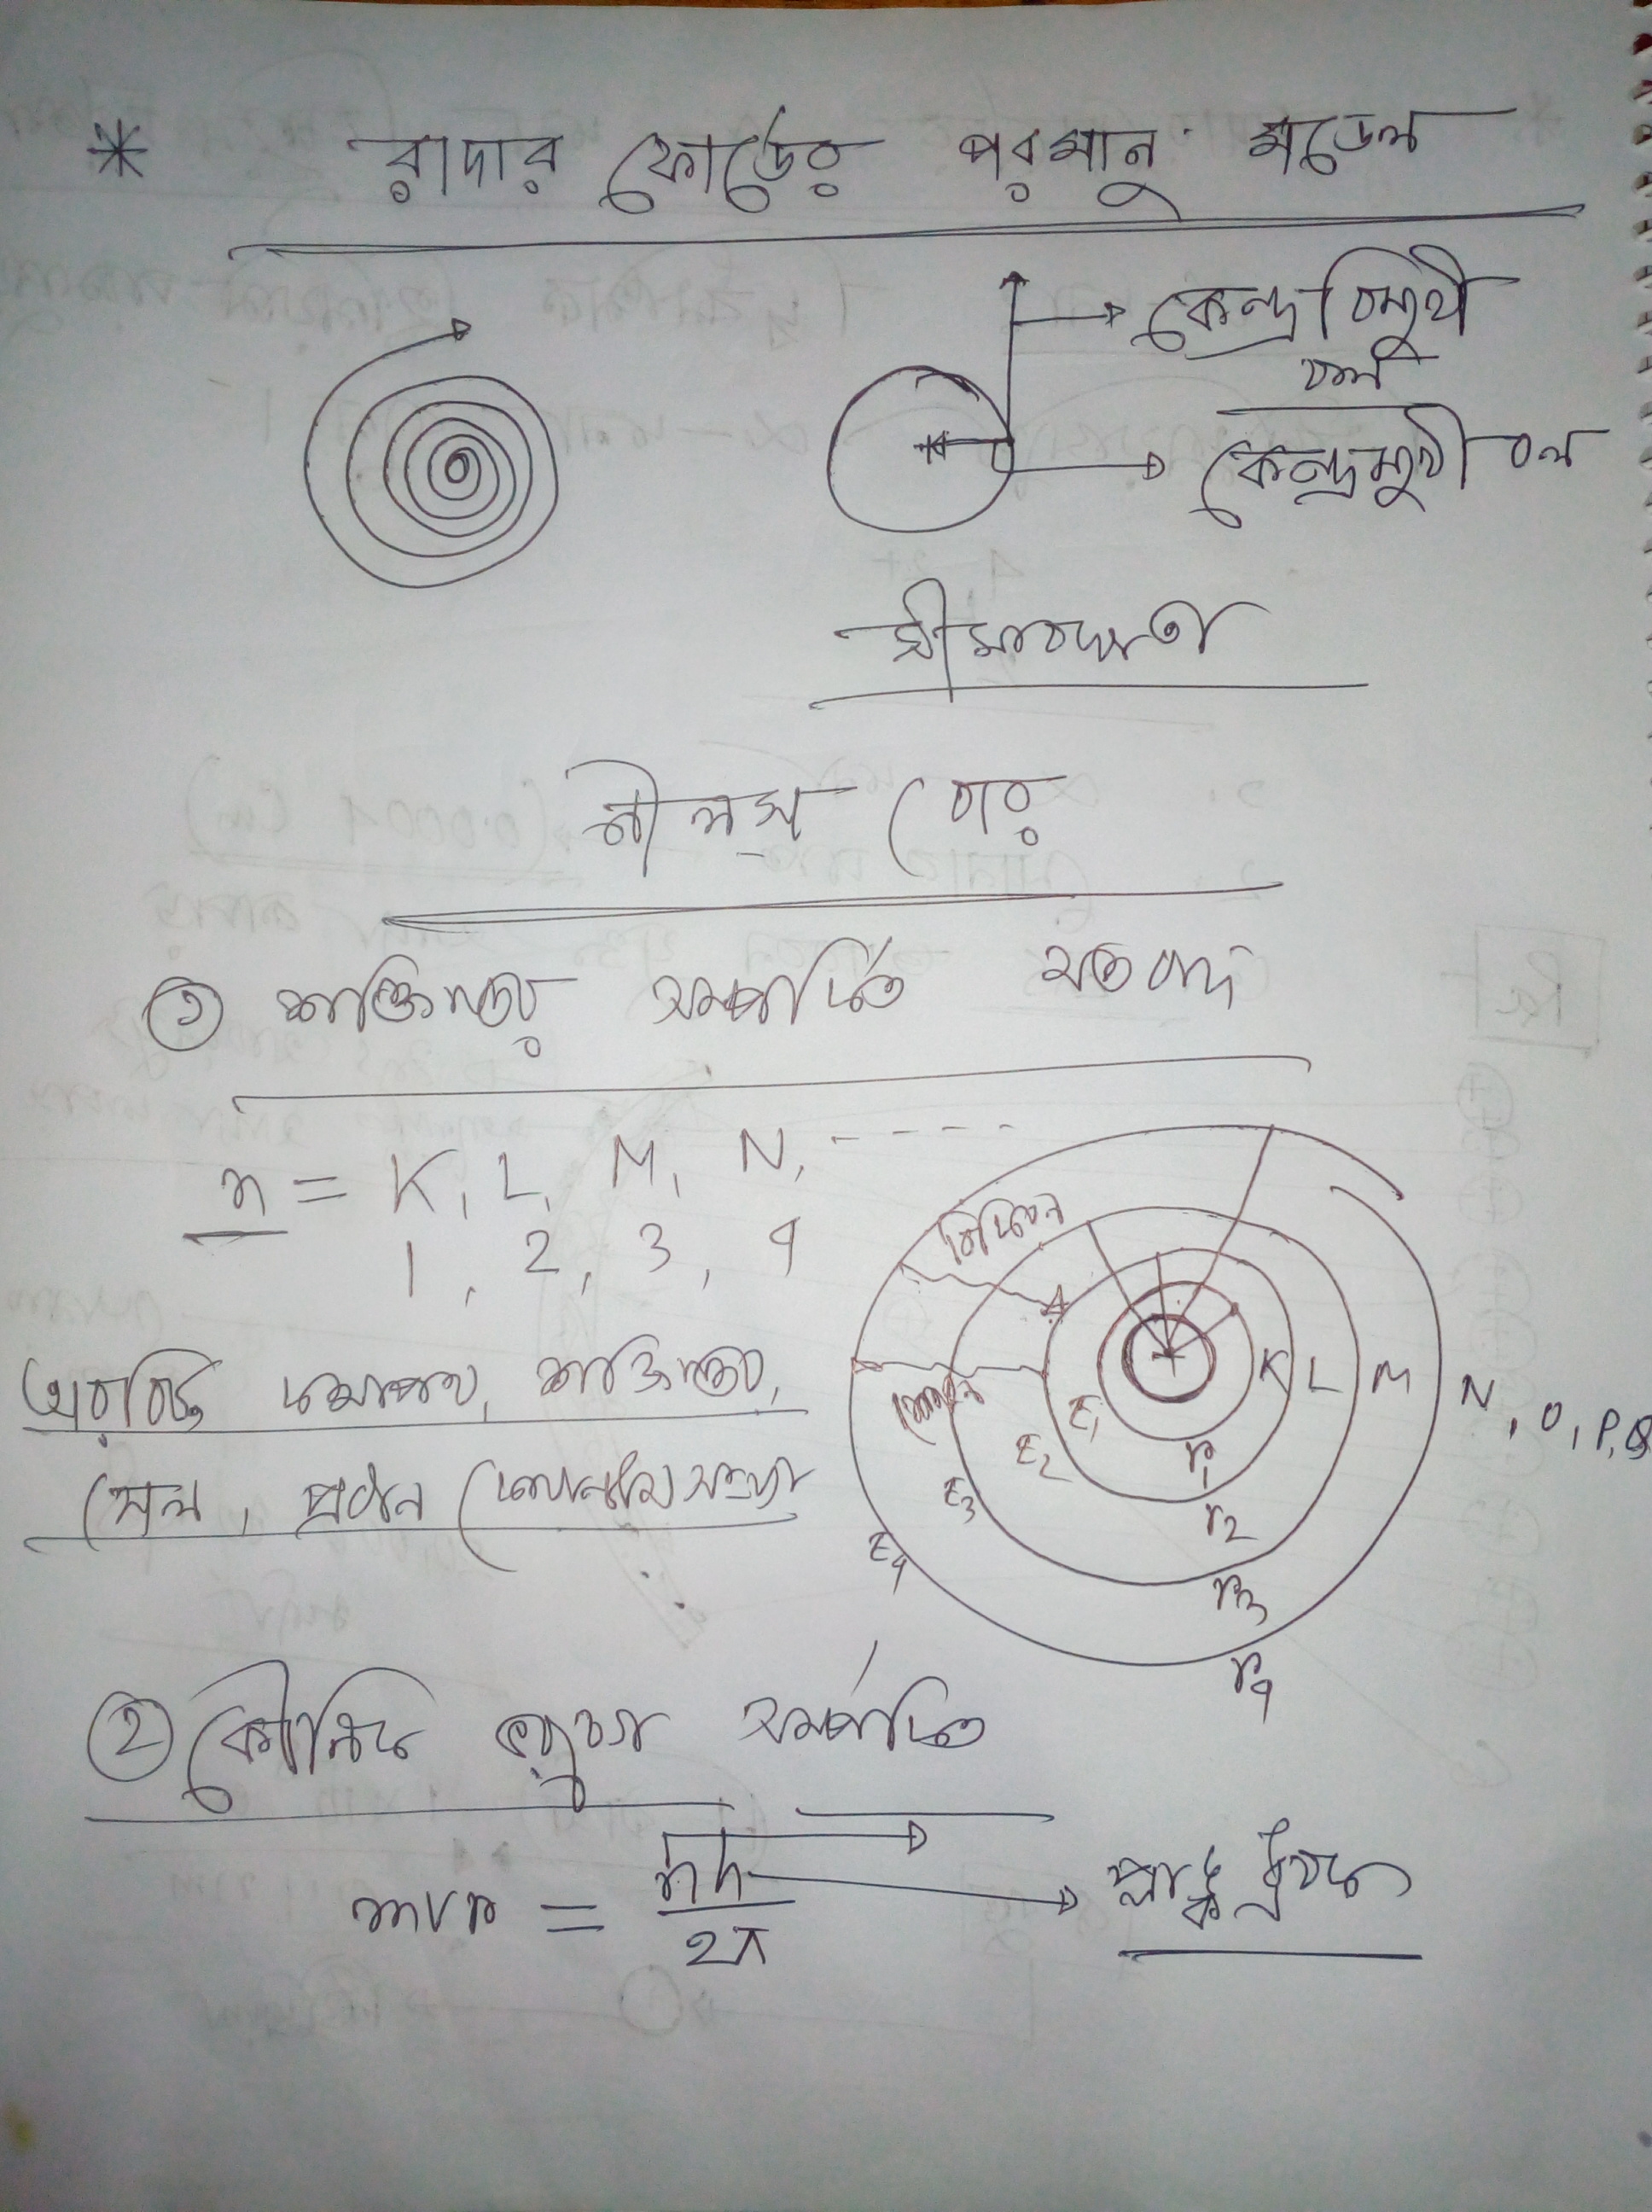 * রাদার ফোর্ডের পরমানু মডেল
কেন্দ্রবিমুখী
বল
কেন্দ্রমুখী বল
সীমাবদ্ধতা
নীলস বোর
① শক্তিস্তর সম্পর্কিত মতবাদ
n = K, L, M, N, - - - - -
1, 2, 3, 4
শক্তিস্তর,
সেল, প্রধান কোয়ান্টাম সংখ্যা
বিকিরন
শোষন
K L M N, O, P, Q
E1
E2
E3
E4
r1
r2
r3
r4
② কৌনিক ভরবেগ সম্পর্কিত
mvr = nh / 2π
প্লাঙ্ক ধ্রুবক